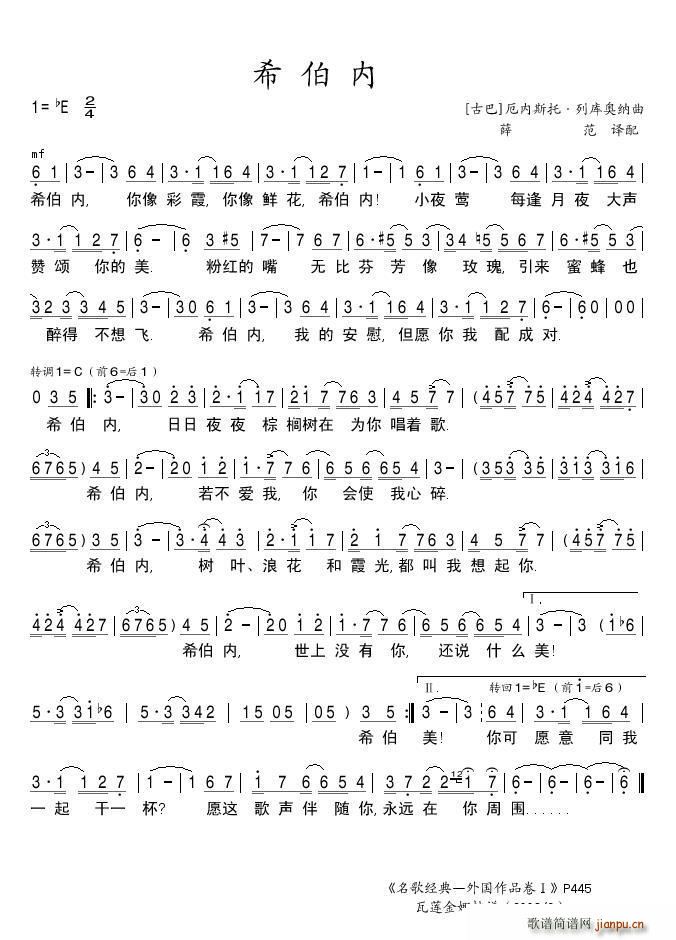 希伯内
1=♭E 2/4
[古巴]厄内斯托·列库奥纳曲
薛 范 译配
mf
6 1 | 3 - | 3 6 4 | 3·1 1 6 4 | 3·1 1 2 7 | 1 - | 1 6 1 | 3 - | 3 6 4 | 3·1 1 6 4
希伯内, 你像彩霞,你像鲜花,希伯内! 小夜莺 每逢月夜大声
3·1 1 2 7 | 6 - | 6 3 #5 | 7 - | 7 6 7 | 6·#5 5 3 | 3 4 ♮5 5 3 | 6·#5 5 3
赞颂 你的美. 粉红的嘴 无比芬芳像 玫瑰,引来蜜蜂也
3 2 3 3 4 5 | 3 - | 3 0 6 1 | 3 - | 3 6 4 | 3·1 1 6 4 | 3·1 1 2 7 | 6 - | 6 0 | 0 0
醉得 不想飞. 希伯内, 我的安慰,但愿你我配成对.
转调1=C(前6=后1)
0 3 5 ‖: 3 - | 3 0 2 3 | 2·1 1 7 | 2 1 7 7 6 3 | 4 5 7 7 | (4 5 7 7 5 | 4 2 4 4 2 7
希伯内, 日日夜夜 棕榈树在 为你唱着歌.
6 7 6 5) 4 5 | 2 - | 2 0 1 2 | 1·7 7 6 | 6 5 6 6 5 4 | 5 3 - | (3 5 3 3 5 | 3 1 3 3 1 6
希伯内, 若不爱我, 你 会使 我心碎.
6 7 6 5) 3 5 | 3 - | 3·4 4 3 | 2·1 1 7 | 2 1 7 7 6 3 | 4 5 7 7 | (4 5 7 7 5
希伯内, 树叶、浪花 和霞光,都叫我想起你.
I.
4 2 4 4 2 7 | 6 7 6 5) 4 5 | 2 - | 2 0 1 2 | 1·7 7 6 | 6 5 6 6 5 4 | 3 - | 3 (1 ♭6
希伯内, 世上没有你, 还说什么美!
II. 转回1=♭E(前1=后6)
5·3 3 1 ♭6 | 5·3 3 3 4 2 | 1 5 0 5 | 0 5) 3 5 :‖ 3 - | 3 6 4 | 3·1 1 6 4
希伯 美! 你可愿意 同我
3·1 1 2 7 | 1 - | 1 7 1 | 7 6 6 5 4 | 3 7 2 2·1 7 | 6 - | 6 - | 6 6 ‖
一起 干一杯? 愿这歌声伴随你,永远在你周围......
《名歌经典—外国作品卷Ⅰ》P445
瓦莲金娜
歌谱简谱网
jianpu.cn